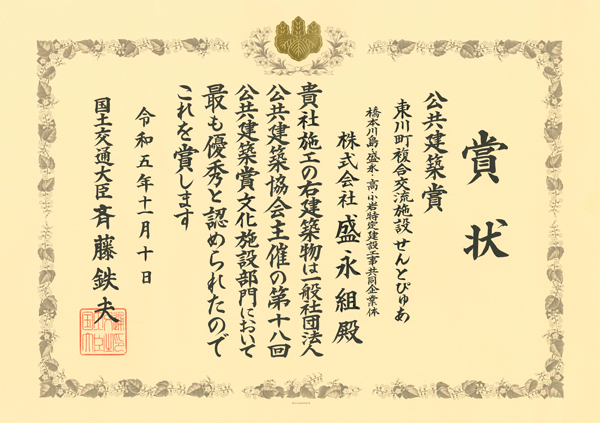 賞状
公共建築賞
東川町複合交流施設 せんとぴゅあ
橋本川島・盛永・高・小岩特定建設工事共同企業体
株式会社 盛永組 殿
貴社施工の右建築物は一般社団法人
公共建築協会主催の第十八回
公共建築賞文化施設部門において
最も優秀と認められたので
これを賞します
令和五年十一月十日
国土交通大臣 斉藤鉄夫